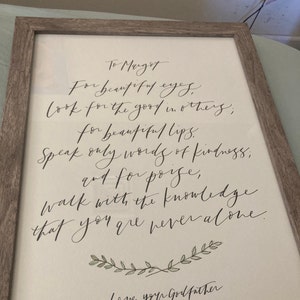 To Margot
For beautiful eyes,
look for the good in others,
for beautiful lips,
Speak only words of kindness,
and for poise,
walk with the knowledge
that you are never alone.
Love your Godfather